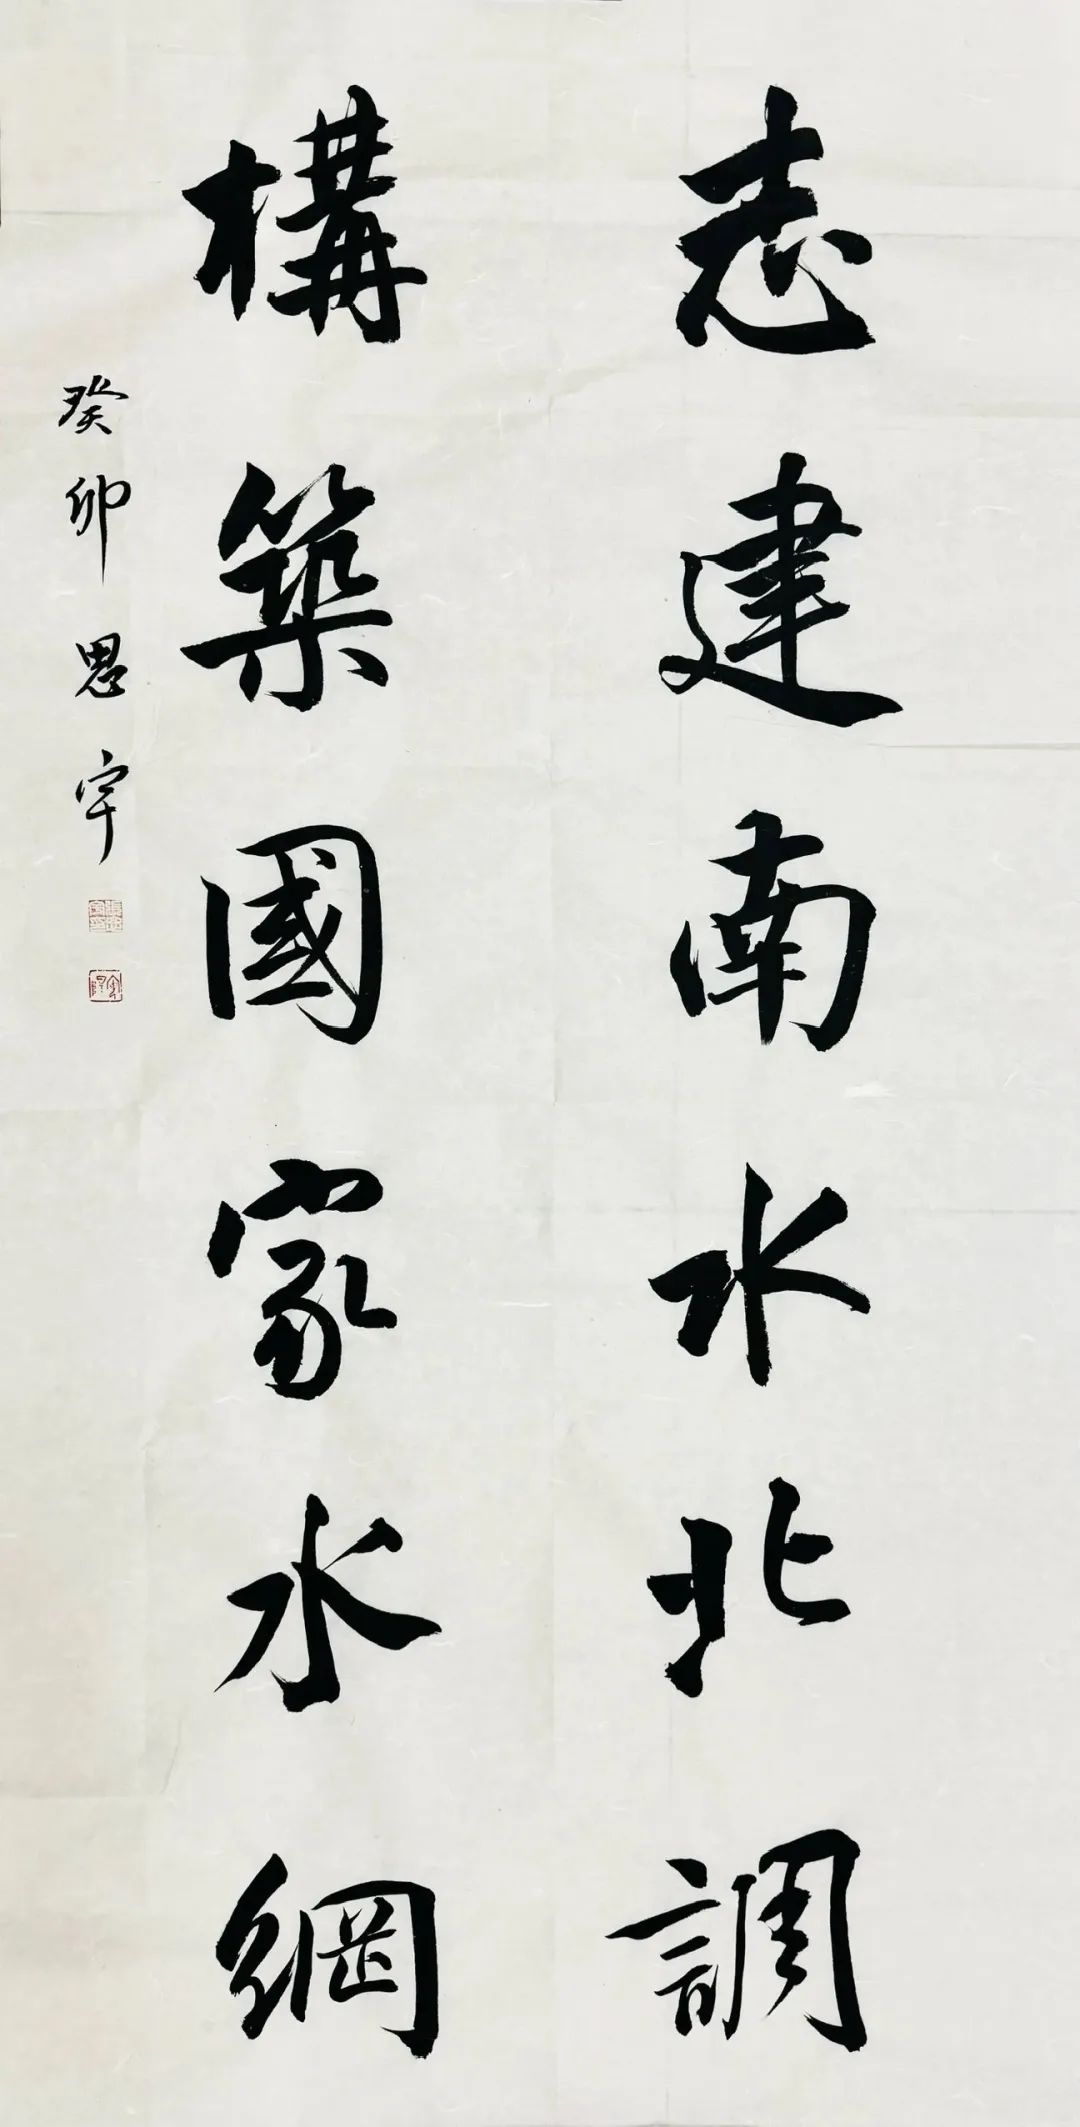 志建南水北調
構築國家水網
癸卯思宇